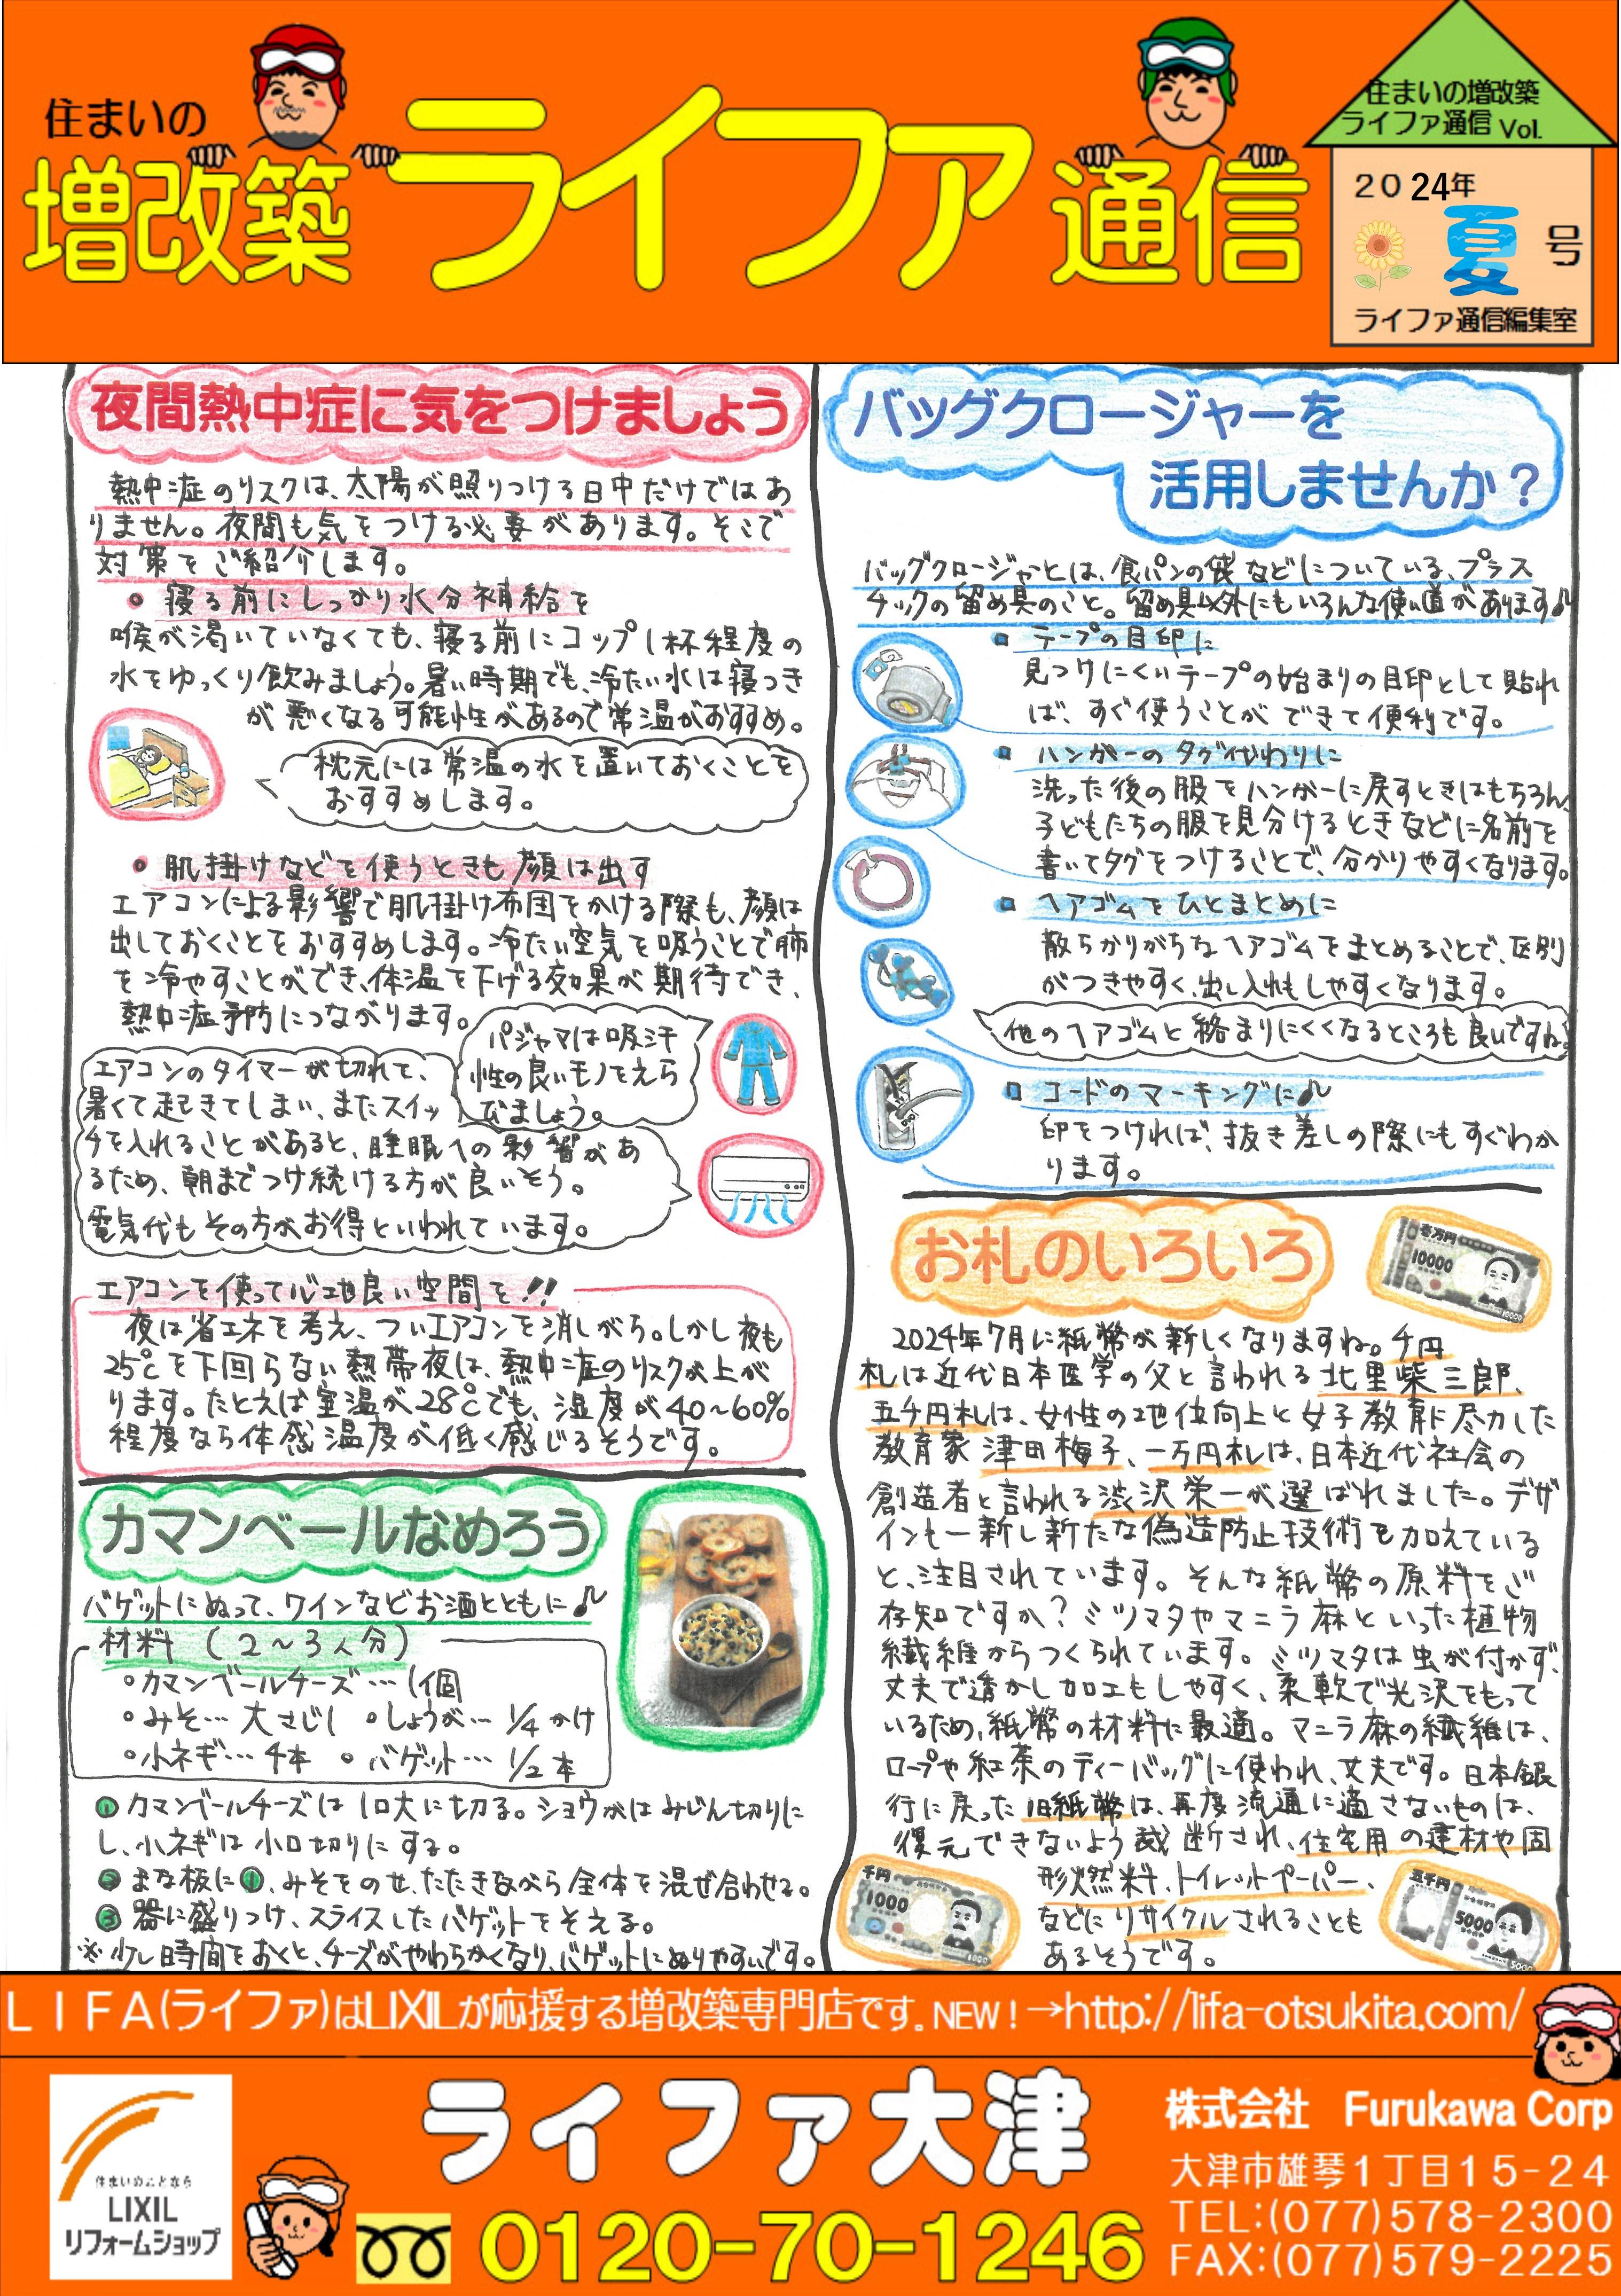 住まいの
増改築 ライファ 通信
住まいの増改築
ライファ通信 Vol.
2024年
夏 号
ライファ通信編集室
夜間熱中症に気をつけましょう
熱中症のリスクは、太陽が照りつける日中だけではあ
りません。夜間も気をつける必要があります。そこで
対策をご紹介します。
• 寝る前にしっかり水分補給を
喉が渇いていなくても、寝る前にコップ1杯程度の
水をゆっくり飲みましょう。暑い時期でも、冷たい水は寝つき
が悪くなる可能性があるので常温がおすすめ。
枕元には常温の水を置いておくことを
おすすめします。
• 肌掛けなどを使うときも顔は出す
エアコンによる影響で肌掛け布団をかける際も、顔は
出しておくことをおすすめします。冷たい空気を吸うことで肺
を冷やすことができ、体温を下げる効果が期待でき、
熱中症予防につながります。
パジャマは吸汗
性の良いモノをえら
びましょう。
エアコンのタイマーが切れて、
暑くて起きてしまい、またスイッ
チを入れることがあると、睡眠への影響があ
るため、朝までつけ続ける方が良いそう。
電気代もその方がお得といわれています。
エアコンを使って心地良い空間を!!
夜は省エネを考え、ついエアコンを消しがち。しかし夜も
25℃を下回らない熱帯夜は、熱中症のリスクが上が
ります。たとえば室温が28℃でも、湿度が40~60%
程度なら体感温度が低く感じるそうです。
カマンベールなめろう
バゲットにぬって、ワインなどお酒とともに♪
材料（2～3人分）
・カマンベールチーズ…1個
・みそ…大さじ1 ・しょうが…1/4かけ
・小ネギ…4本 ・バゲット…1/2本
① カマンベールチーズは1口大に切る。ショウガはみじん切りに
し、小ネギは小口切りにする。
② まな板に①、みそをのせ、たたきながら全体を混ぜ合わせる。
③ 器に盛りつけ、スライスしたバゲットをそえる。
※少し時間をおくと、チーズがやわらかくなり、バゲットにぬりやすいです。
バッグクロージャーを
活用しませんか？
バッグクロージャーとは、食パンの袋などについている、プラス
チックの留め具のこと。留め具以外にもいろんな使い道があります♪
▫ テープの目印に
見つけにくいテープの始まりの目印として貼れ
ば、すぐ使うことができて便利です。
▫ ハンガーのタグ代わりに
洗った後の服をハンガーに戻すときはもちろん
子どもたちの服を見分けるときなどに名前を
書いてタグをつけることで、分かりやすくなります。
▫ ヘアゴムをひとまとめに
散らかりがちなヘアゴムをまとめることで、区別
がつきやすく、出し入れもしやすくなります。
他のヘアゴムと絡まりにくくなるところも良いですね
▫ コードのマーキングに♪
印をつければ、抜き差しの際にもすぐわか
ります。
お札のいろいろ
壱万円
10000
2024年7月に紙幣が新しくなりますね。千円
札は近代日本医学の父と言われる北里柴三郎、
五千円札は、女性の地位向上と女子教育に尽力した
教育家津田梅子、一万円札は、日本近代社会の
創造者と言われる渋沢栄一が選ばれました。デザ
インも一新し新たな偽造防止技術を加えている
と、注目されています。そんな紙幣の原料をご
存知ですか？ミツマタやマニラ麻といった植物
繊維からつくられています。ミツマタは虫が付かず、
丈夫で透かし加工もしやすく、柔軟で光沢をもって
いるため、紙幣の材料に最適。マニラ麻の繊維は、
ロープや紅茶のティーバッグに使われ、丈夫です。日本銀
行に戻った旧紙幣は、再度流通に適さないものは、
復元できないよう裁断され、住宅用の建材や固
形燃料、トイレットペーパー、
などにリサイクルされることも
あるそうです。
千円
1000
五千円
5000
ＬＩＦＡ(ライファ)はLIXILが応援する増改築専門店です。NEW！→http://lifa-otsukita.com/
住まいのことなら
LIXIL
リフォームショップ
ライファ大津
0120-70-1246
株式会社 Furukawa Corp
大津市雄琴１丁目１５-２４
TEL:(077)578-2300
FAX:(077)579-2225